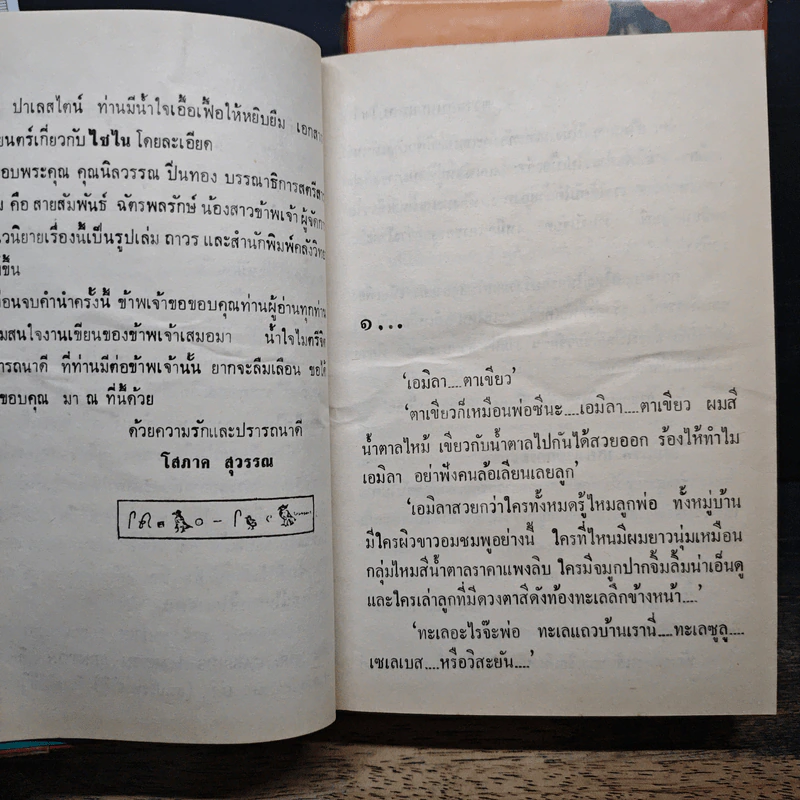 ปาเลสไตน์ ท่านมีน้ำใจเอื้อเฟื้อให้หยิบยืม เอกสาร
ยนตร์เกี่ยวกับ ไซไน โดยละเอียด
อบพระคุณ คุณนิลวรรณ ปิ่นทอง บรรณาธิการสตรีสาร
ม คือ สายสัมพันธ์ ฉัตรพลรักษ์ น้องสาวข้าพเจ้า ผู้จัดกา
วนิยายเรื่องนี้เป็นรูปเล่ม ถาวร และสำนักพิมพ์คลังวิทย
ขึ้น
่อนจบคำนำครั้งนี้ ข้าพเจ้าขอขอบคุณท่านผู้อ่านทุกท่าน
มสนใจงานเขียนของข้าพเจ้าเสมอมา น้ำใจไมตรีจิต
ารถนาดี ที่ท่านมีต่อข้าพเจ้านั้น ยากจะลืมเลือน ขอได้
ขอบคุณ มา ณ ที่นี้ด้วย
ด้วยความรักและปรารถนาดี
โสภาค สุวรรณ
๑...
'เอมิลา....ตาเขียว'
'ตาเขียวก็เหมือนพ่อซีนะ....เอมิลา....ตาเขียว ผมสี
น้ำตาลไหม้ เขียวกับน้ำตาลไปกันได้สวยออก ร้องไห้ทำไม
เอมิลา อย่าฟังคนล้อเลียนเลยลูก'
'เอมิลาสวยกว่าใครทั้งหมดรู้ไหมลูกพ่อ ทั้งหมู่บ้าน
มีใครผิวขาวอมชมพูอย่างนี้ ใครที่ไหนมีผมยาวนุ่มเหมือน
กลุ่มไหมสีน้ำตาลราคาแพงลิบ ใครมีจมูกปากจิ้มลิ้มน่าเอ็นดู
และใครเล่าลูกที่มีดวงตาสีดังท้องทะเลลึกข้างหน้า....'
'ทะเลอะไรจ๊ะพ่อ ทะเลแถวบ้านเรานี่....ทะเลซูลู....
เซเลเบส....หรือวิสะยัน....'